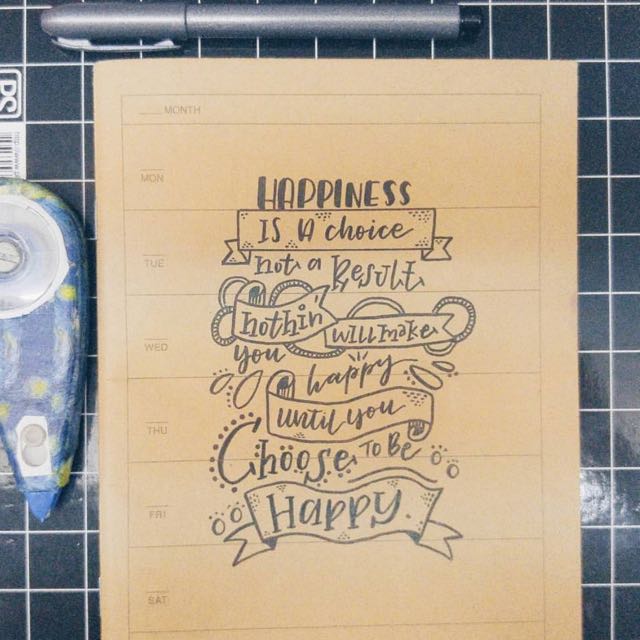 MONTH
MON
TUE
WED
THU
FRI
SAT
HAPPINESS
IS A choice
not a Result.
nothin' will make
you happy
until you
Choose TO BE
Happy.